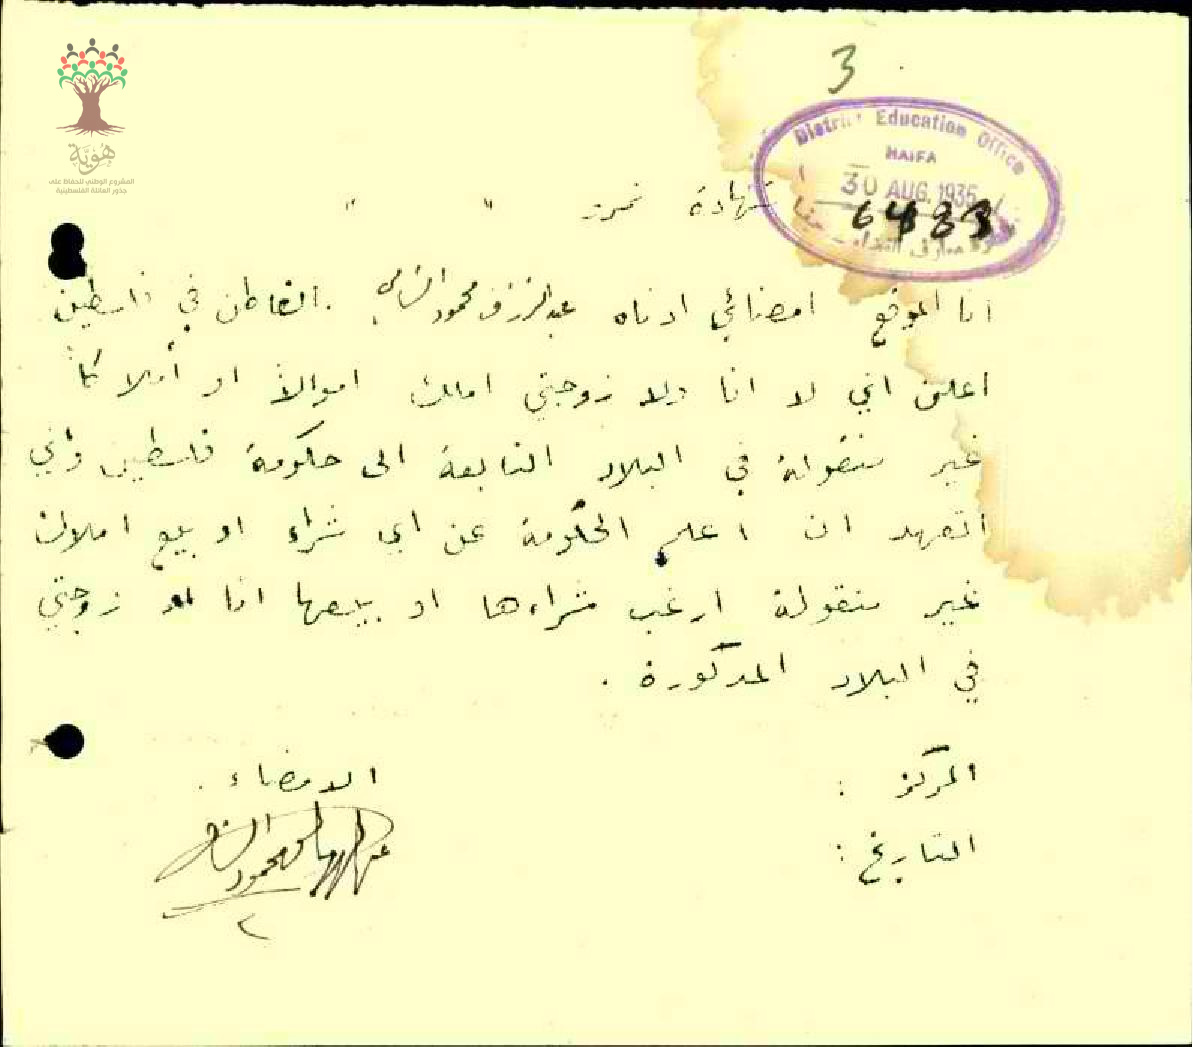 3
District Education Office
HAIFA
30 AUG. 1935
6483
هوية
المشروع الوطني للحفاظ على
جذور العائلة الفلسطينية
شهادة نمرة " "
انا الموقع امضائي ادناه عبد الرزق محمود الشامي القاطن في فلسطين
اعلن اني لا انا ولا زوجتي املك اموالاً او أملاكاً
غير منقولة في البلاد التابعة الى حكومة فلسطين وأني
اتعهد ان اعلم الحكومة عن اي شراء او بيع املاك
غير منقولة ارغب شراءها او بيعها انا زوجتي
في البلاد المذكورة .
المركز :
الامضاء .
التاريخ :
محمود